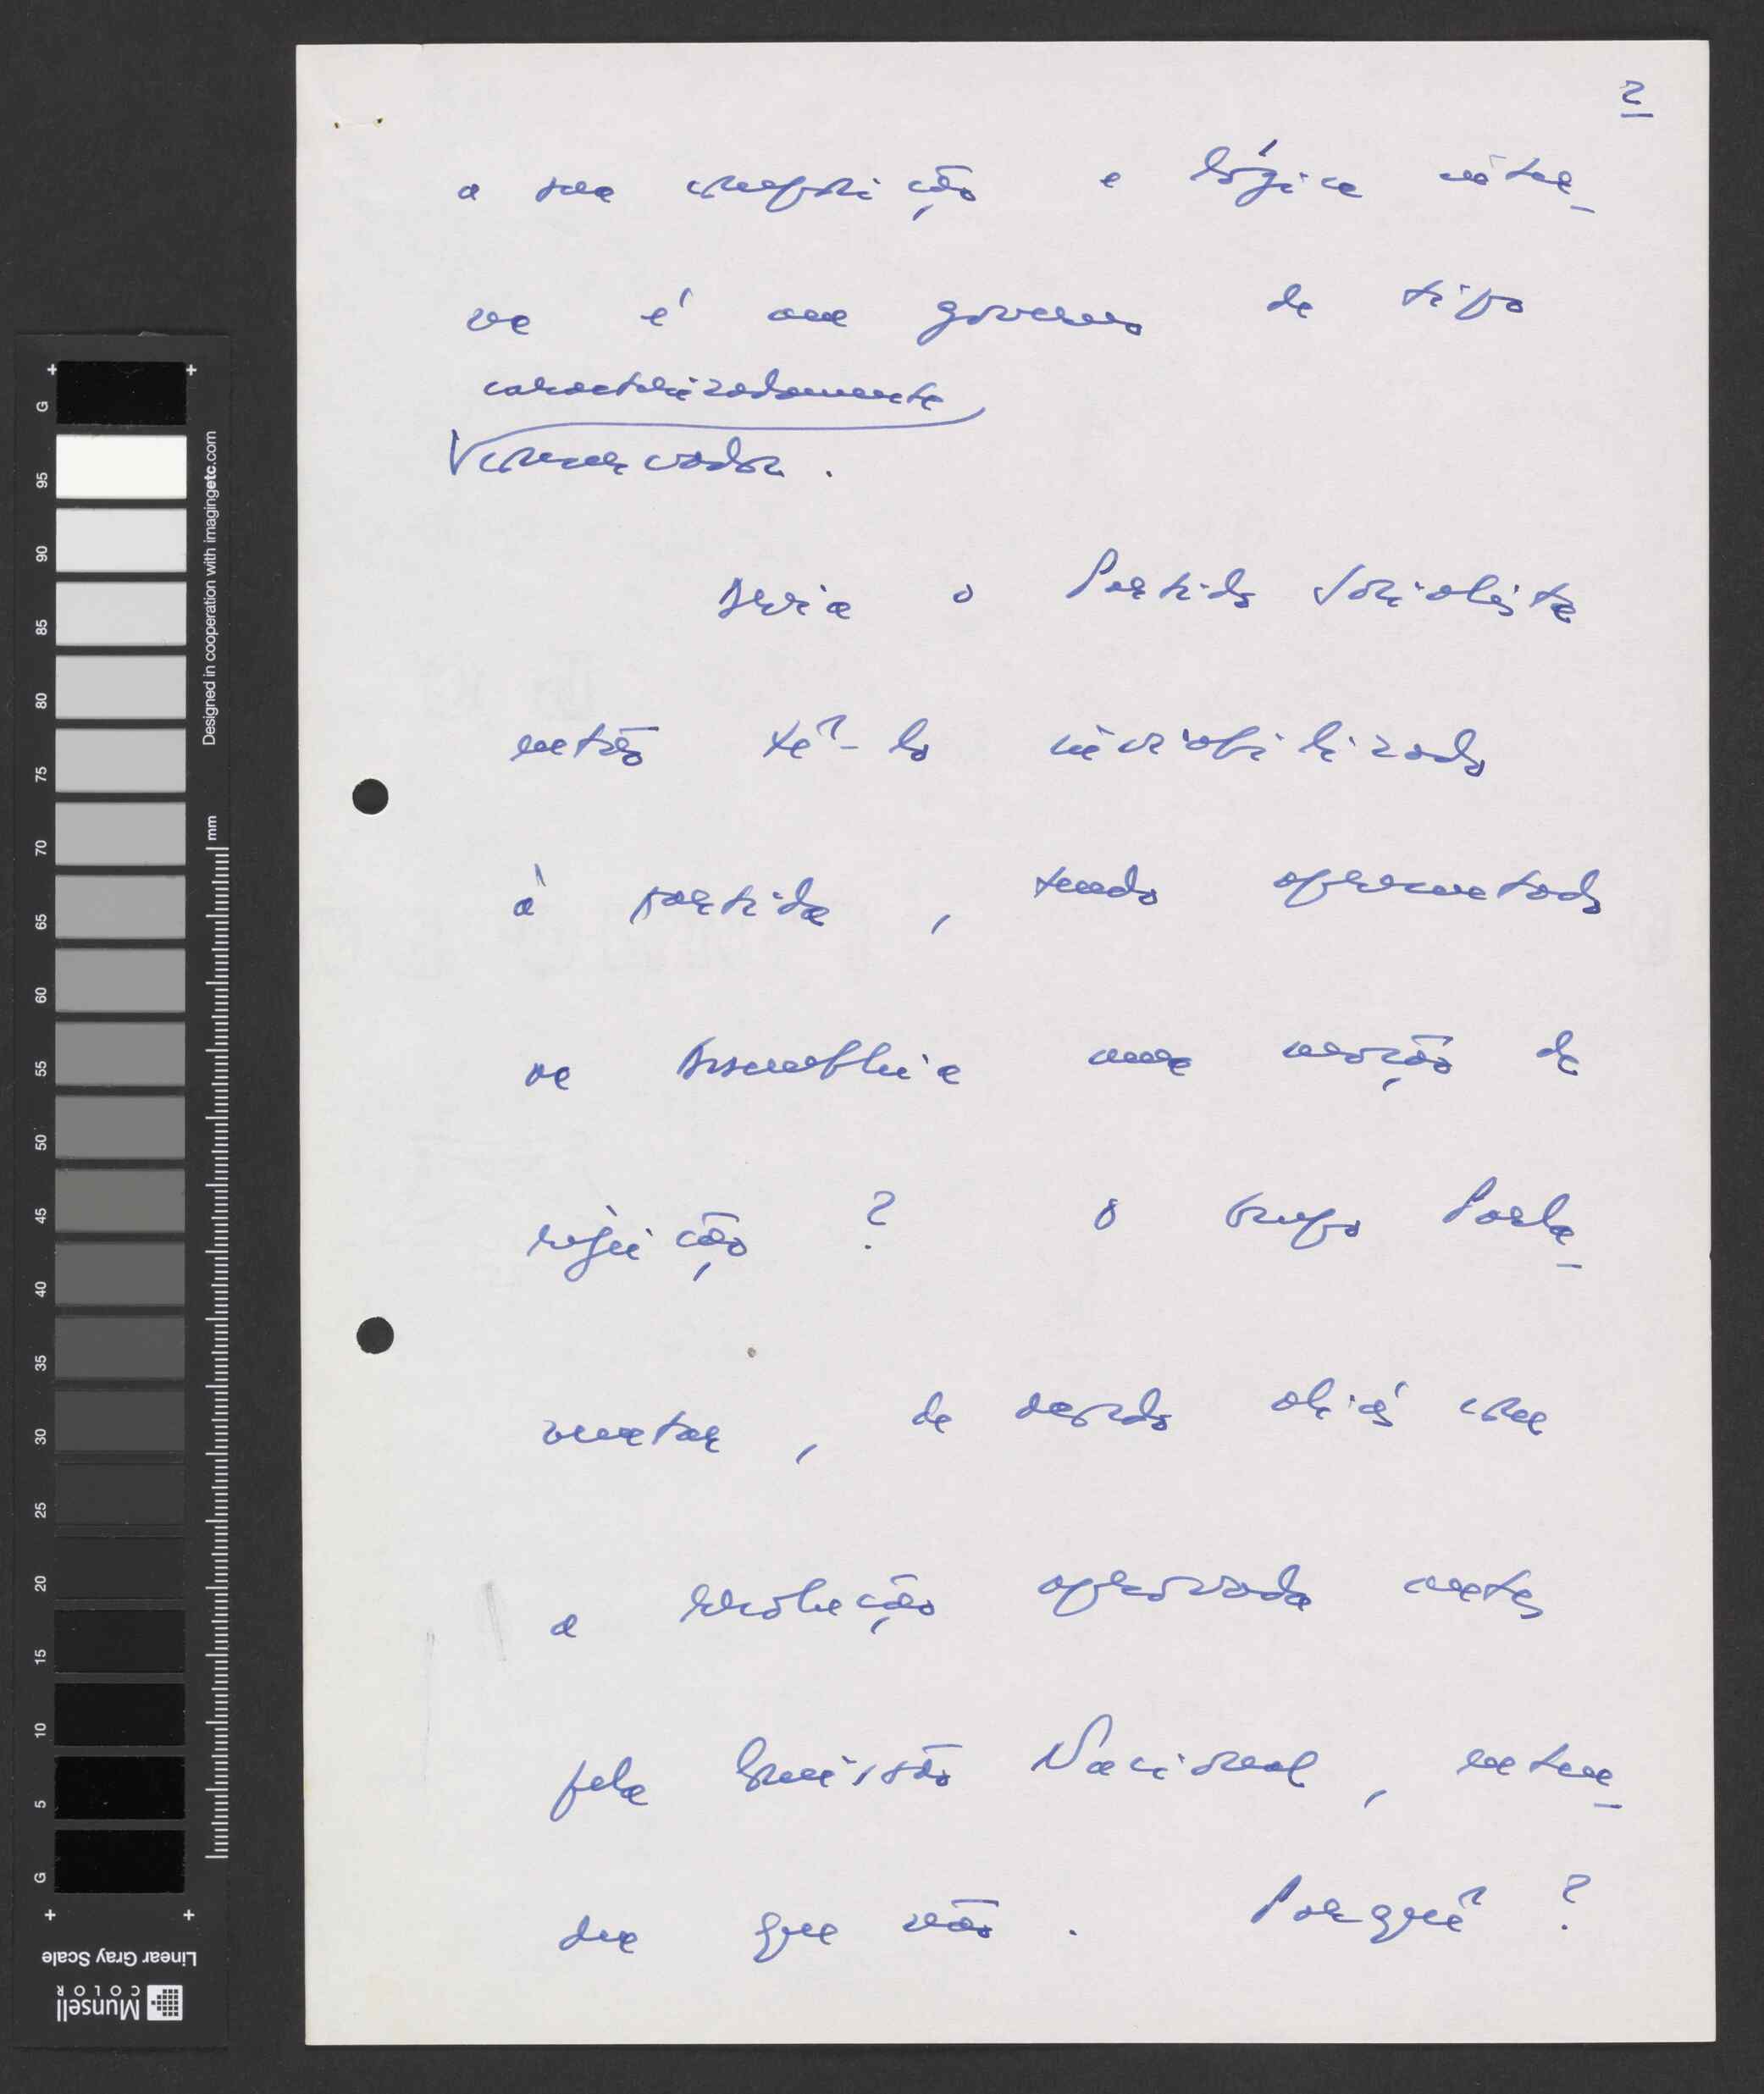 2
a sua composição e lógica inter-
na é um governo de tipo
caracterizadamente
conservador.
Devia o Partido Socialista
então tê-lo inviabilizado
à partida, tendo apresentado
na Assembleia uma moção de
rejeição? O Grupo Parla-
mentar, de acordo aliás com
a resolução aprovada antes
pela Comissão Nacional, enten-
deu que não. Porquê?
G
95
90
85
80
75
70
65
60
55
50
45
40
35
30
25
20
15
10
5
G
mm
Designed in cooperation with imagingetc.com
Linear Gray Scale
Munsell
COLOR